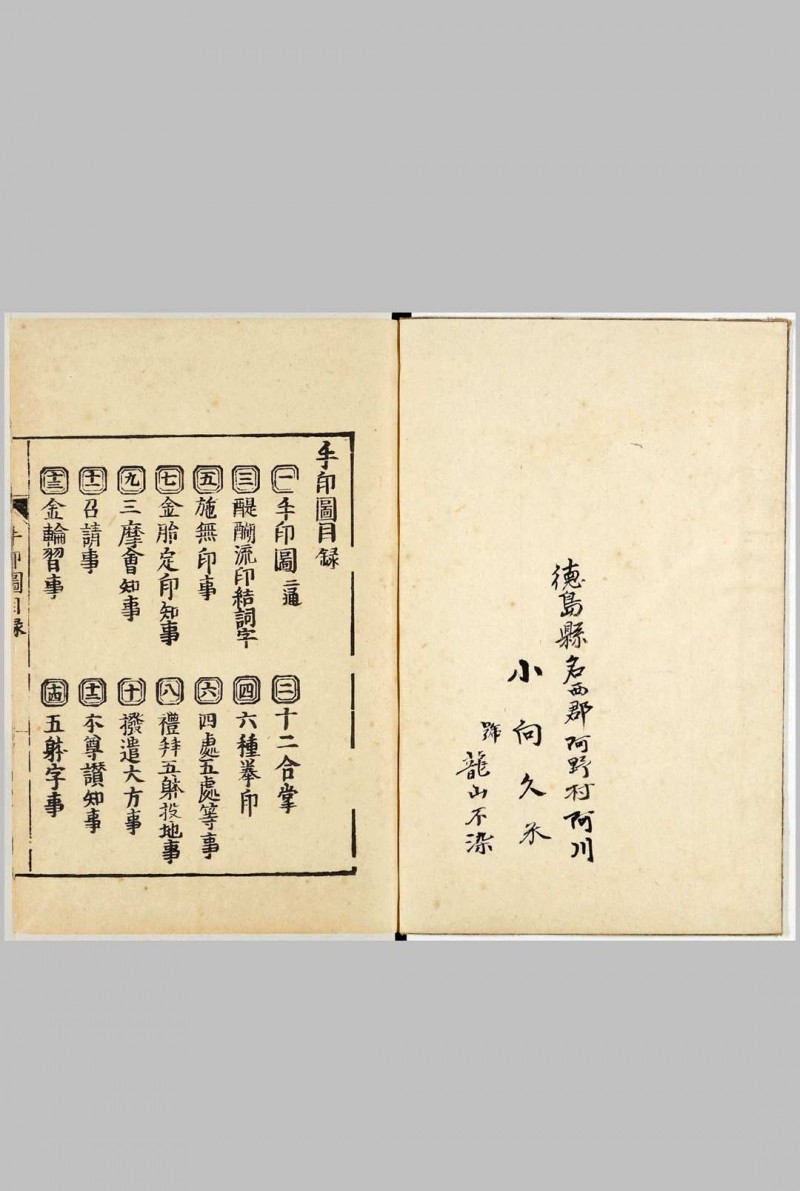 徳島縣名西郡阿野村阿川
小向久
號
龍山不染
手印圖目録
一 手印圖二通
二 十二合掌
三 醍醐流印結詞字
四 六種拳印
五 施無印事
六 四處五處等事
七 金胎定印知事
八 禮拜五躰投地事
九 三摩會知事
十 撥遣大方事
十一 召請事
十二 本尊讃知事
十三 金輪習事
十四 五躰字事
手印圖目録